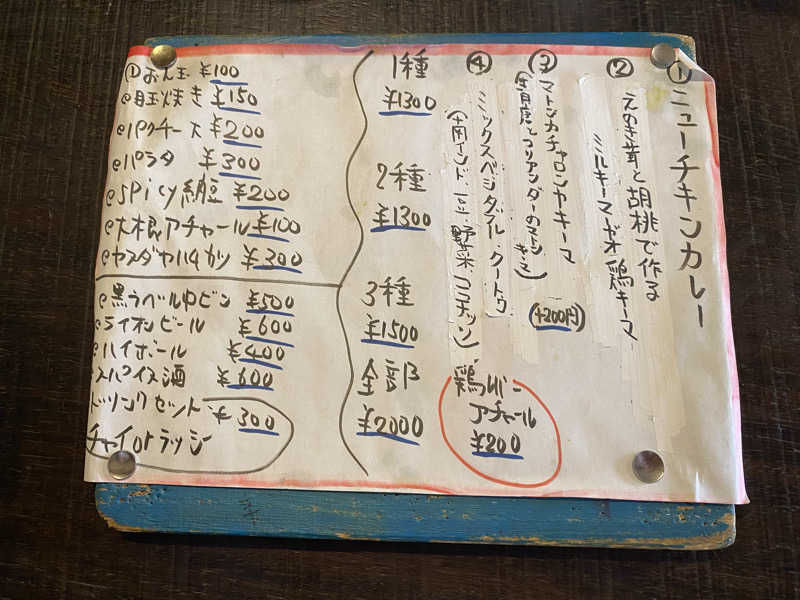 ①ニューチキンカレー
②えのき茸と胡桃で作る
ミルキーマサオ鶏キーマ
③マトンカチャロンヤキーマ
(生青唐とコリアンダーのマトンキーマ)
(+200円)
④ミックスベジタブル・クートゥ
(南インド 豆 野菜 ココナッツ)
鶏レバー
アチャール
¥200
1種
¥1300
2種
¥1300
3種
¥1500
全部
¥2000
¥100
目玉焼き ¥150
パクチー大 ¥200
パラタ ¥300
spicy納豆 ¥200
大根アチャール ¥100
ヤスダヤハムカツ ¥300
黒ラベル中ビン ¥500
ライオンビール ¥600
ハイボール ¥400
スパイス酒 ¥600
ドリンクセット ¥300
チャイorラッシー